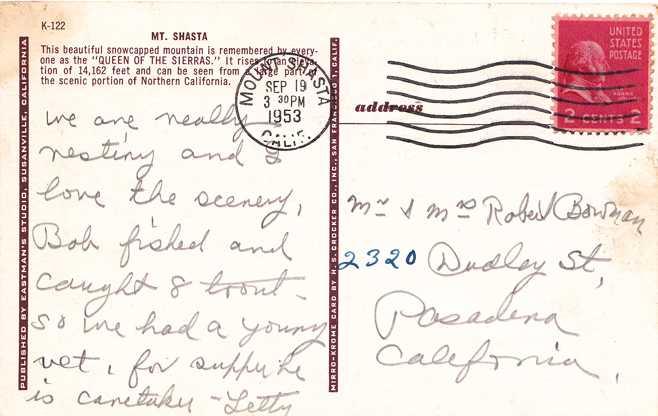 K-122
MT. SHASTA
This beautiful snowcapped mountain is remembered by every-
one as the "QUEEN OF THE SIERRAS." It rises to an eleva-
tion of 14,162 feet and can be seen from a large part of
the scenic portion of Northern California.
PUBLISHED BY EASTMAN'S STUDIO, SUSANVILLE, CALIFORNIA
we are really
resting and
love the scenery,
Bob fished and
caught 8 trout-
so we had a young
vet, for supper he
is caretaker - Letty
MIRRO-KROME CARD BY H. S. CROCKER CO., INC., SAN FRANCISCO 1, CALIF.
MOUNT SHASTA
SEP 19
3 30PM
1953
CALIF.
address
UNITED
STATES
POSTAGE
ADAMS
2 CENTS 2
Mr & Mrs Robert Bowman
2320 Dudley St,
Pasadena
California,